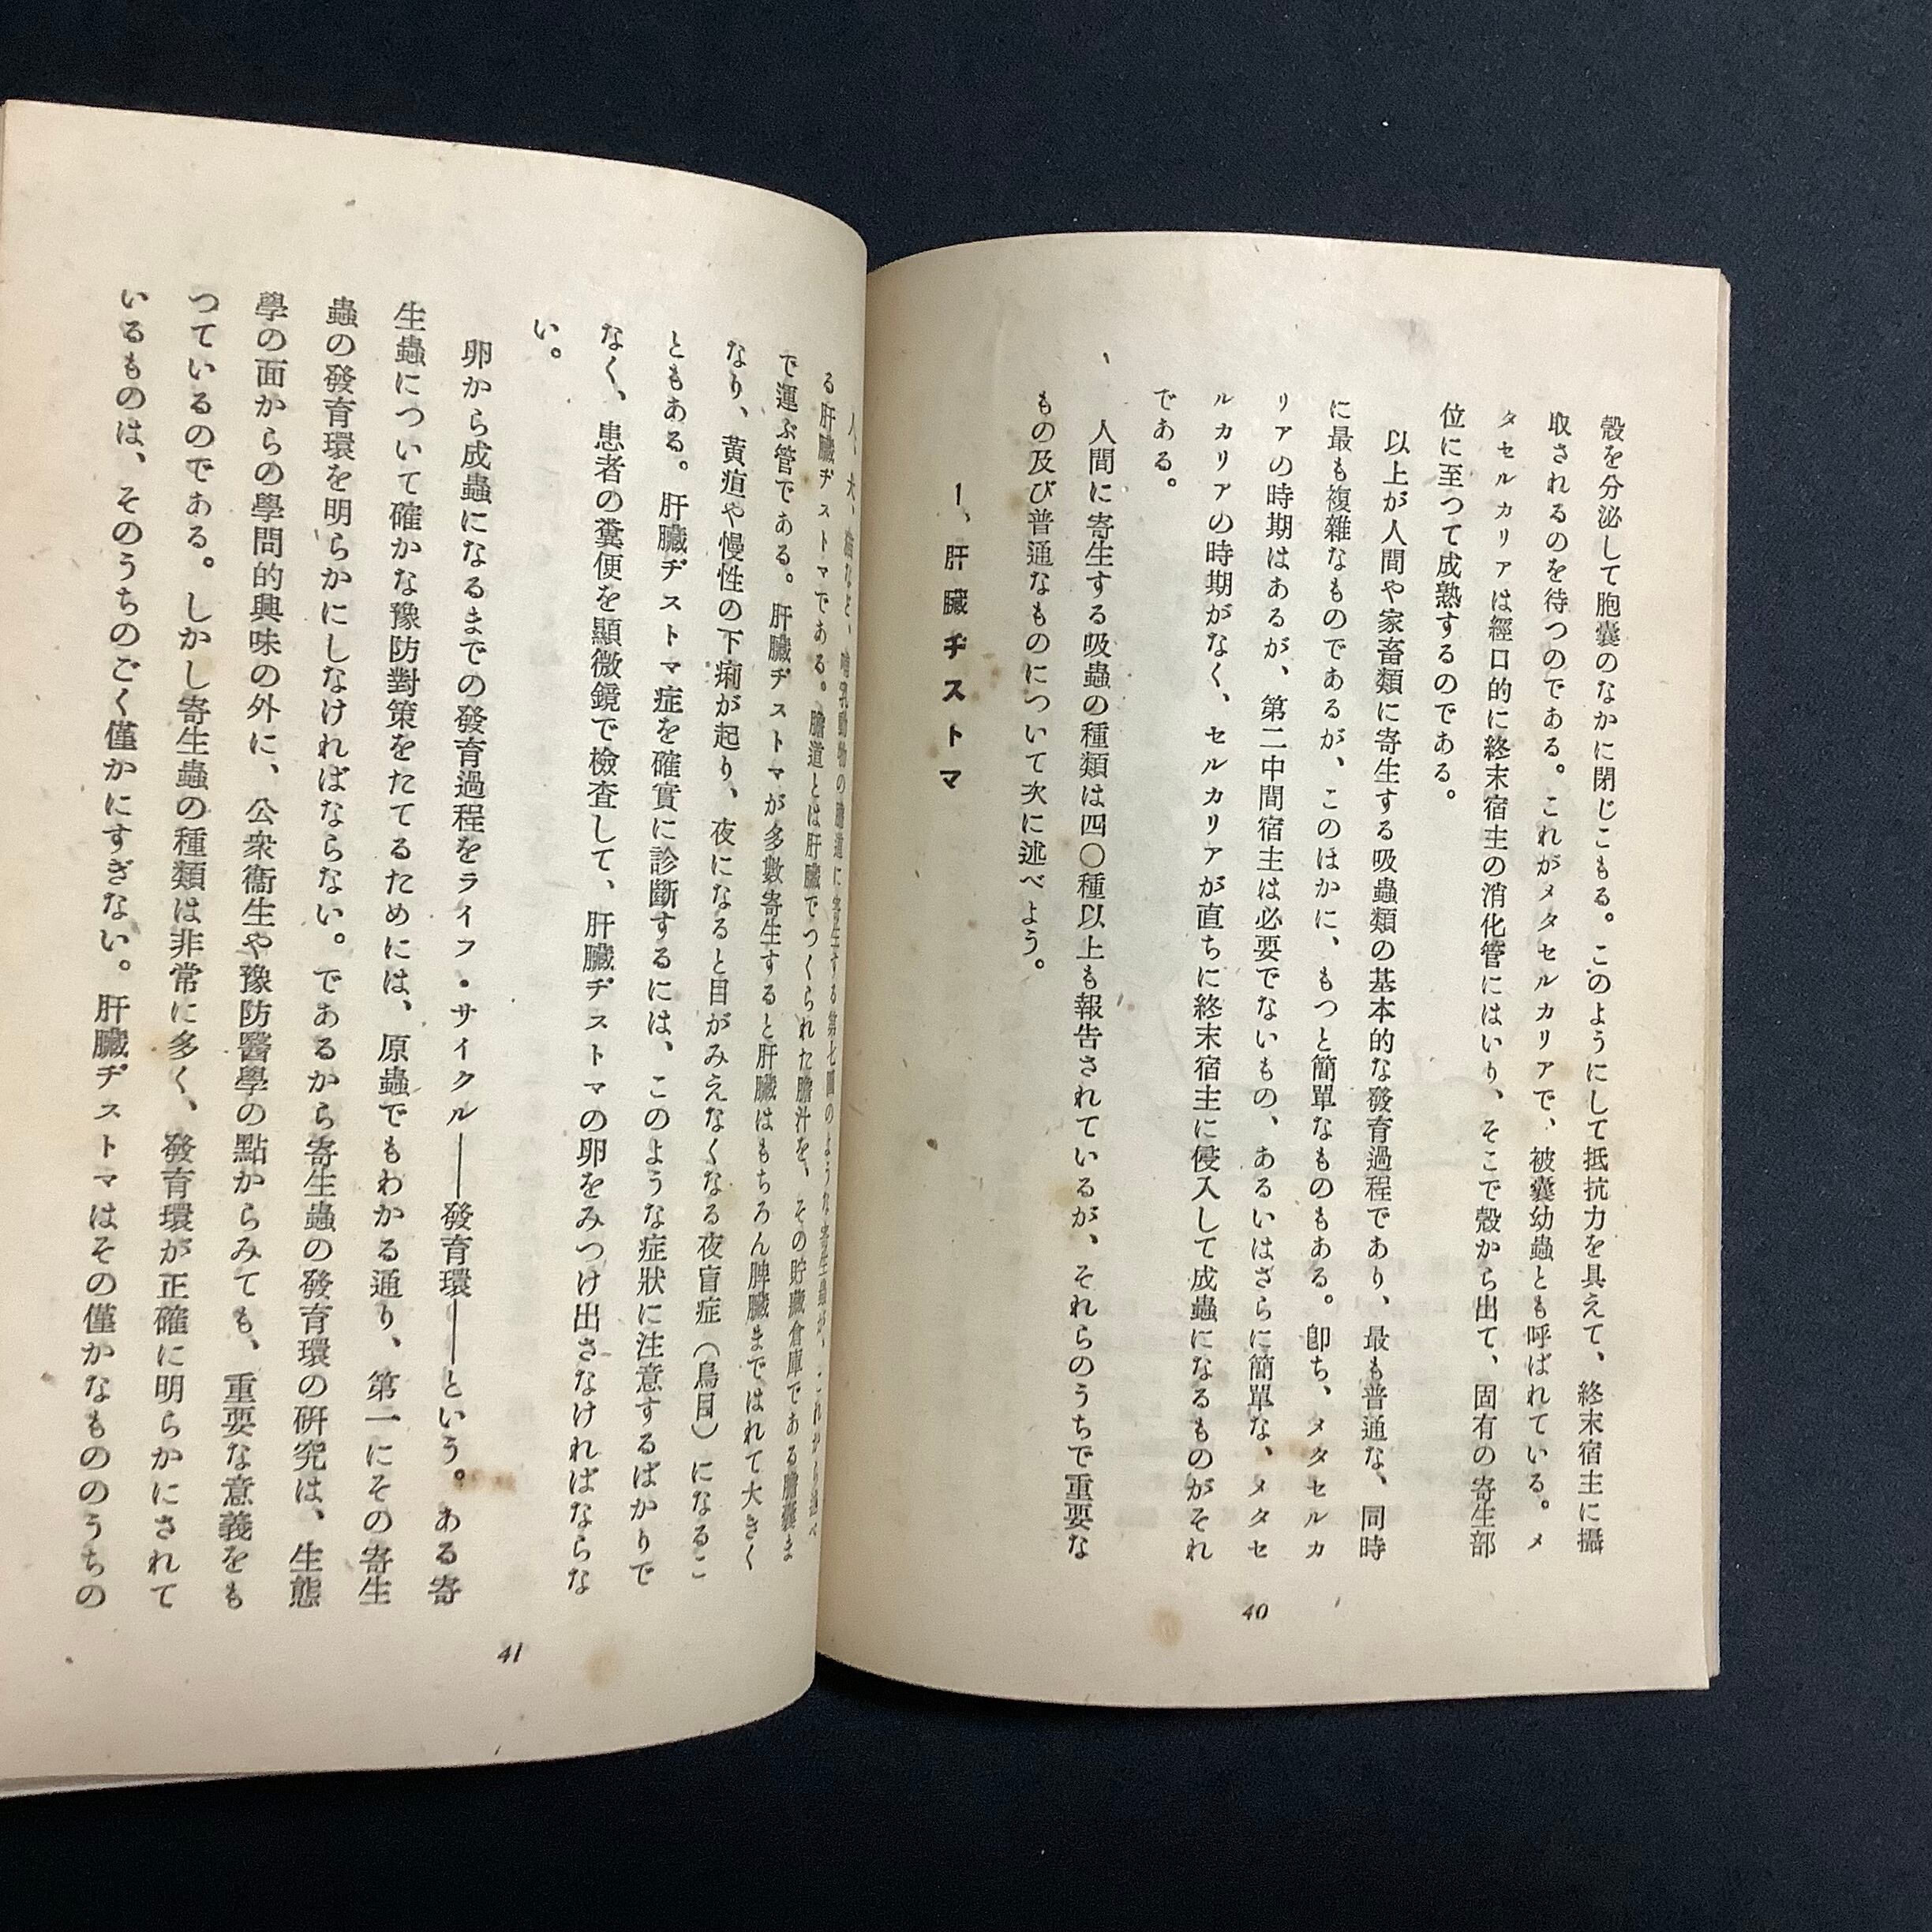 殼を分泌して胞嚢のなかに閉じこもる。このようにして抵抗力を具えて、終末宿主に攝
取されるのを待つのである。これがメタセルカリアで、被嚢幼蟲とも呼ばれている。メ
タセルカリアは經口的に終末宿主の消化管にはいり、そこで殼から出て、固有の寄生部
位に至つて成熟するのである。
以上が人間や家畜類に寄生する吸蟲類の基本的な發育過程であり、最も普通な、同時
に最も複雜なものであるが、このほかに、もつと簡單なものもある。卽ち、メタセルカ
リアの時期はあるが、第二中間宿主は必要でないもの、あるいはさらに簡單な、メタセ
ルカリアの時期がなく、セルカリアが直ちに終末宿主に侵入して成蟲になるものがそれ
である。
人間に寄生する吸蟲の種類は四〇種以上も報告されているが、それらのうちで重要な
もの及び普通なものについて次に述べよう。
1、肝臟ヂストマ
40
人、犬、猫など、哺乳動物の膽道に寄生する第七圖のような寄生蟲が、これから述べ
る肝臟ヂストマである。膽道とは肝臟でつくられた膽汁を、その貯藏倉庫である膽嚢ま
で運ぶ管である。肝臟ヂストマが多數寄生すると肝臟はもちろん脾臟まではれて大きく
なり、黄疸や慢性の下痢が起り、夜になると目がみえなくなる夜盲症（鳥目）になるこ
ともある。肝臟ヂストマ症を確實に診斷するには、このような症狀に注意するばかりで
なく、患者の糞便を顯微鏡で檢査して、肝臟ヂストマの卵をみつけ出さなければならな
い。
卵から成蟲になるまでの發育過程をライフ・サイクル――發育環――という。ある寄
生蟲について確かな豫防對策をたてるためには、原蟲でもわかる通り、第一にその寄生
蟲の發育環を明らかにしなければならない。であるから寄生蟲の發育環の研究は、生態
學の面からの學問的興味の外に、公衆衞生や豫防醫學の點からみても、重要な意義をも
つているのである。しかし寄生蟲の種類は非常に多く、發育環が正確に明らかにされて
いるものは、そのうちのごく僅かにすぎない。肝臟ヂストマはその僅かなもののうちの
41